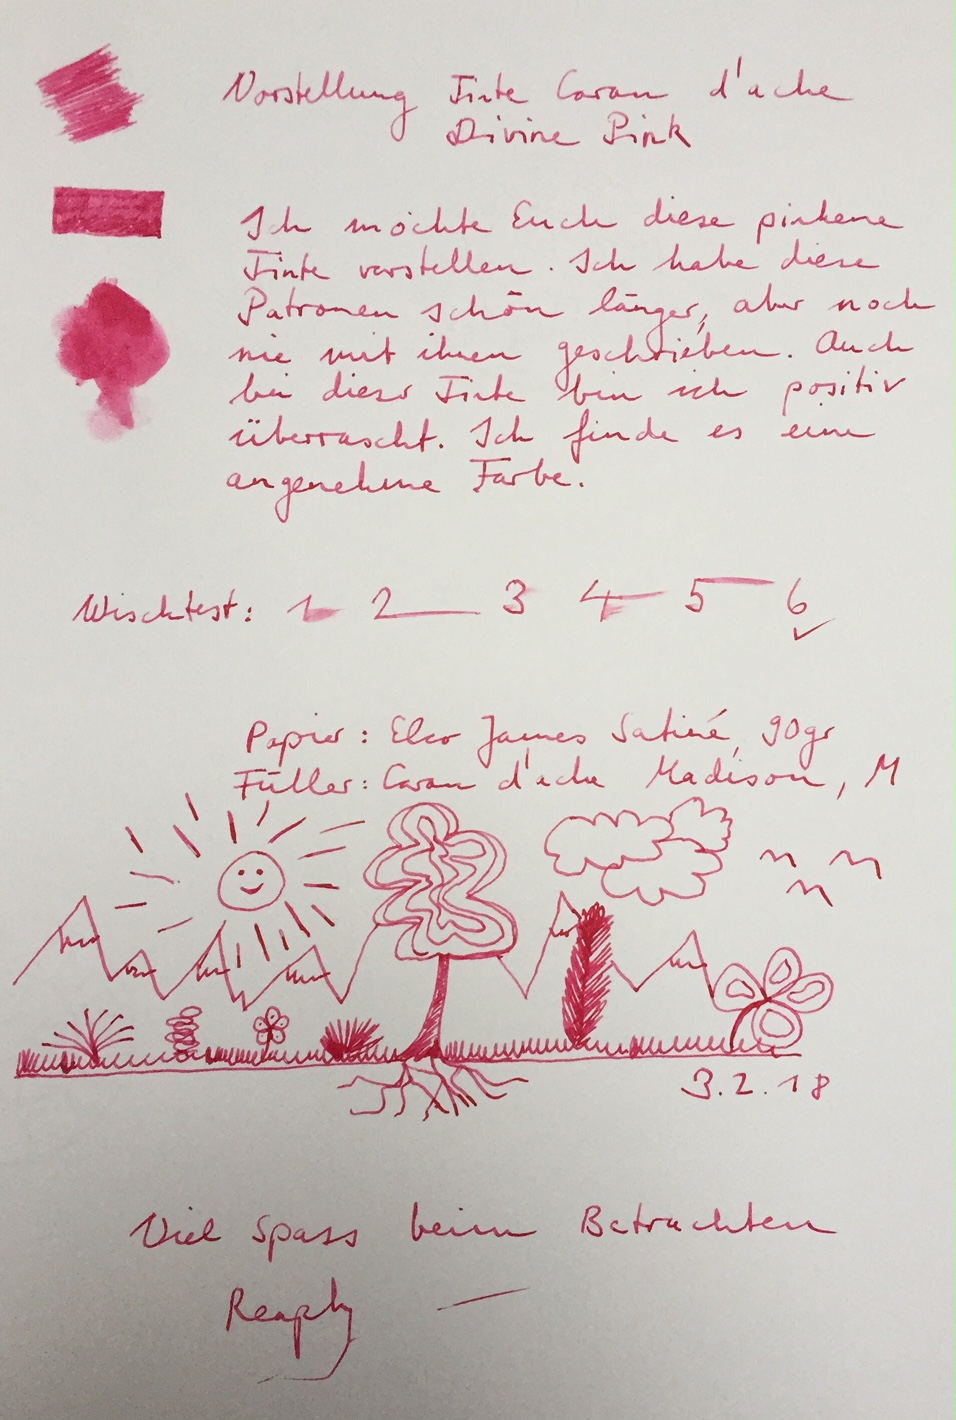 Vorstellung Tinte Caran d'ache
Divine Pink
Ich möchte Euch diese pinkene
Tinte vorstellen. Ich habe diese
Patronen schon länger, aber noch
nie mit ihnen geschrieben. Auch
bei dieser Tinte bin ich positiv
überrascht. Ich finde es eine
angenehme Farbe.
Wischtest: 1 2 3 4 5 6
Papier: Elco James Satiné, 90gr
Füller: Caran d'ache Madison, M
3.2.18
Viel Spass beim Betrachten